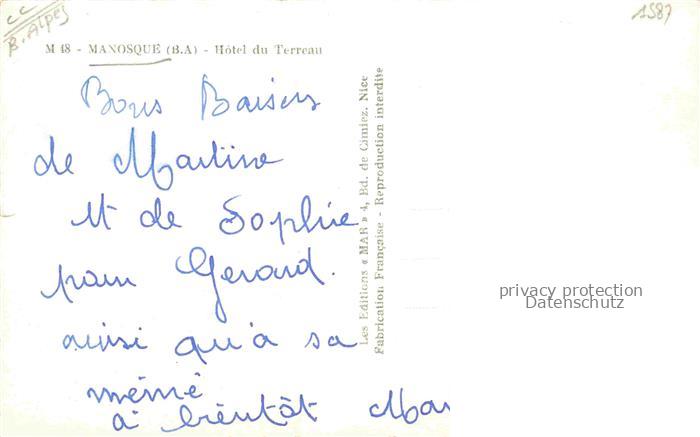 CC
B. ALPES
1587
M 48 - MANOSQUE (B.A) - Hôtel du Terreau
Bons Baisers
de Martine
et de Sophie
pour Gerard.
ainsi qu'à sa
mémé
à bientôt Mar
Les Editions « MAR » 4, Bd. de Cimiez, Nice
Fabrication Française - Reproduction interdite
privacy protection
Datenschutz